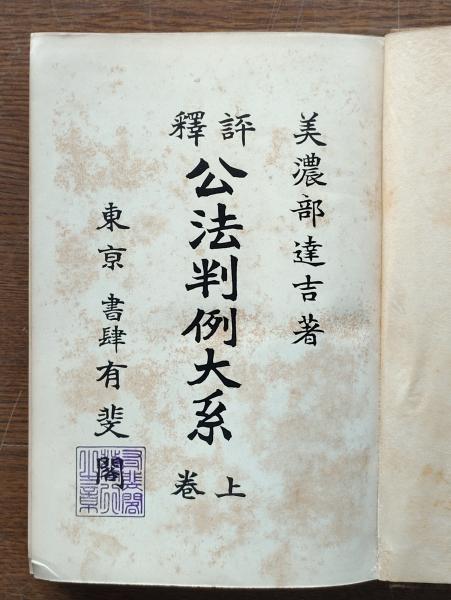 美濃部達吉著
評釋
公法判例大系
上卷
東京 書肆有斐閣